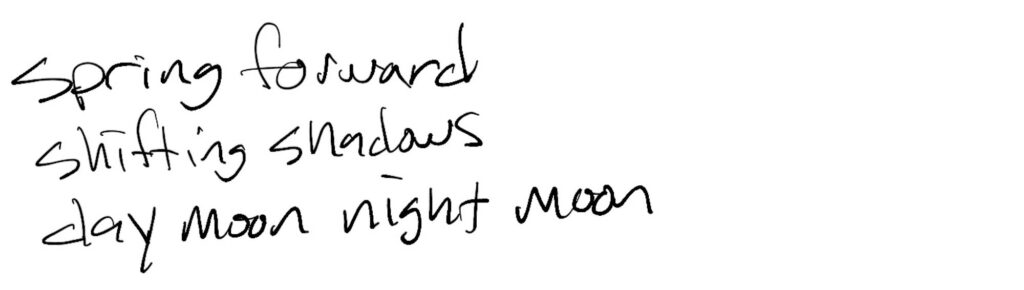 spring forward
shifting shadows
day moon night moon